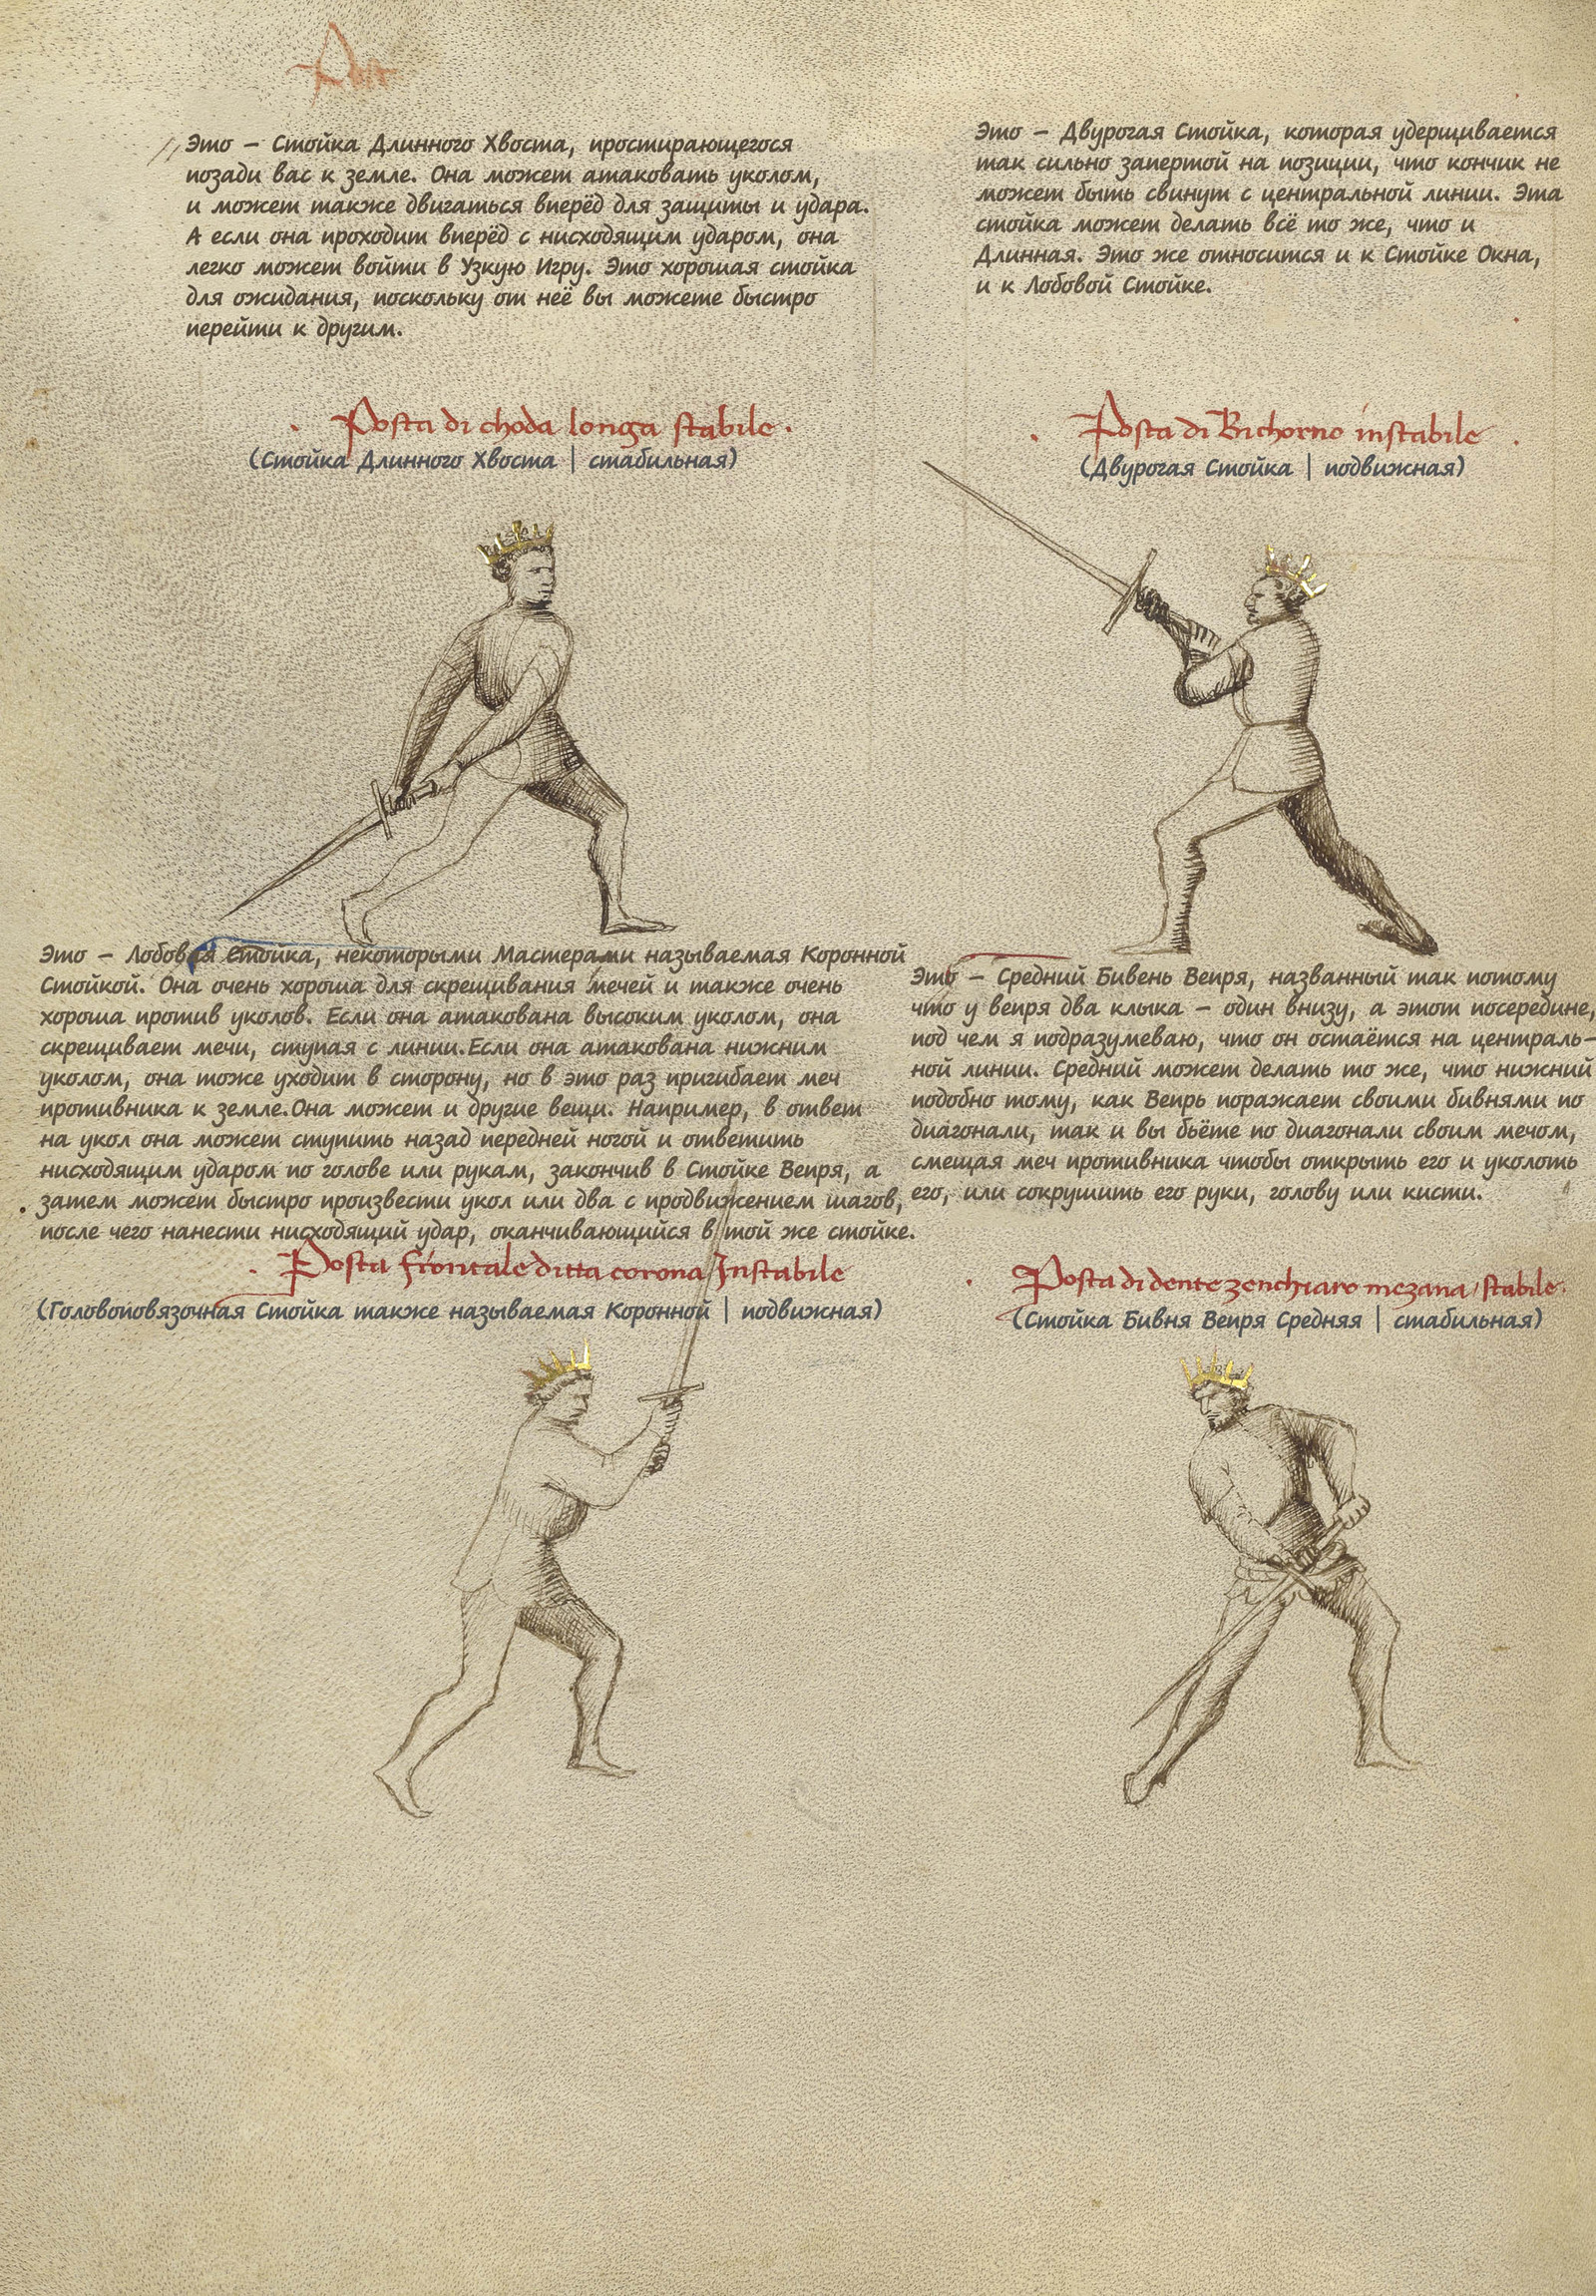 Это – Стойка Длинного Хвоста, простирающегося
позади вас к земле. Она может атаковать уколом,
и может также двигаться вперёд для защиты и удара.
А если она проходит вперёд с нисходящим ударом, она
легко может войти в Узкую Игру. Это хорошая стойка
для ожидания, поскольку от неё вы можете быстро
перейти к другим.
· Posta di choda longa stabile ·
(Стойка Длинного Хвоста | стабильная)
Это – Двурогая Стойка, которая удерщивается
так сильно запертой на позиции, что кончик не
может быть свинут с центральной линии. Эта
стойка может делать всё то же, что и
Длинная. Это же относится и к Стойке Окна,
и к Лобовой Стойке.
· Posta di Bichorno instabile ·
(Двурогая Стойка | подвижная)
Это – Лобовая Стойка, некоторыми Мастерами называемая Коронной
Стойкой. Она очень хороша для скрещивания мечей и также очень
хороша против уколов. Если она атакована высоким уколом, она
скрещивает мечи, ступая с линии.Если она атакована нижним
уколом, она тоже уходит в сторону, но в это раз пригибает меч
противника к земле.Она может и другие вещи. Например, в ответ
на укол она может ступить назад передней ногой и ответить
нисходящим ударом по голове или рукам, закончив в Стойке Вепря, а
затем может быстро произвести укол или два с продвижением шагов,
после чего нанести нисходящий удар, оканчивающийся в той же стойке.
· Posta frontale ditta corona Instabile
(Головоповязочная Стойка также называемая Коронной | подвижная)
Это – Средний Бивень Вепря, названный так потому
что у вепря два клыка – один внизу, а этот посередине,
под чем я подразумеваю, что он остаётся на централь-
ной линии. Средний может делать то же, что нижний
подобно тому, как Вепрь поражает своими бивнями по
диагонали, так и вы бьёте по диагонали своим мечом,
смещая меч противника чтобы открыть его и уколоть
его, или сокрушить его руки, голову или кисти.
· Posta di dente zenchiaro mezana stabile ·
(Стойка Бивня Вепря Средняя | стабильная)